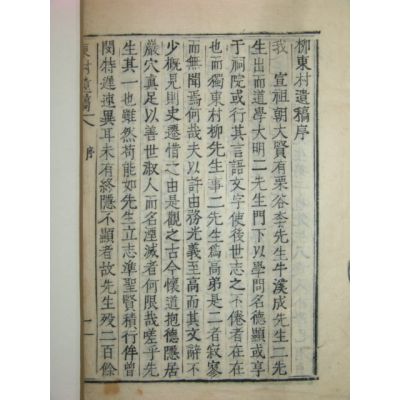 柳東村遺稿序
我 宣祖朝大賢有栗谷李先生牛溪成先生二先
生出而道學大明二先生門下以學問名德顯或享
于祠院或行其言語文字使後世志之不倦者在在
也而獨東村柳先生二先生爲高弟是二者寂寥
而無聞焉何哉夫以許由務光義至高而其文辭不
少槪見則史遷惜之由是觀之古今懷道抱德隱居
巖穴眞足以善世淑人而名湮滅者何限哉嗟乎先
生其一也雖然苟能如先生立志準聖賢積行侔曾
閔特遲速異耳未有終隱不顯者故先生歿二百餘
東村遺稿 序 一